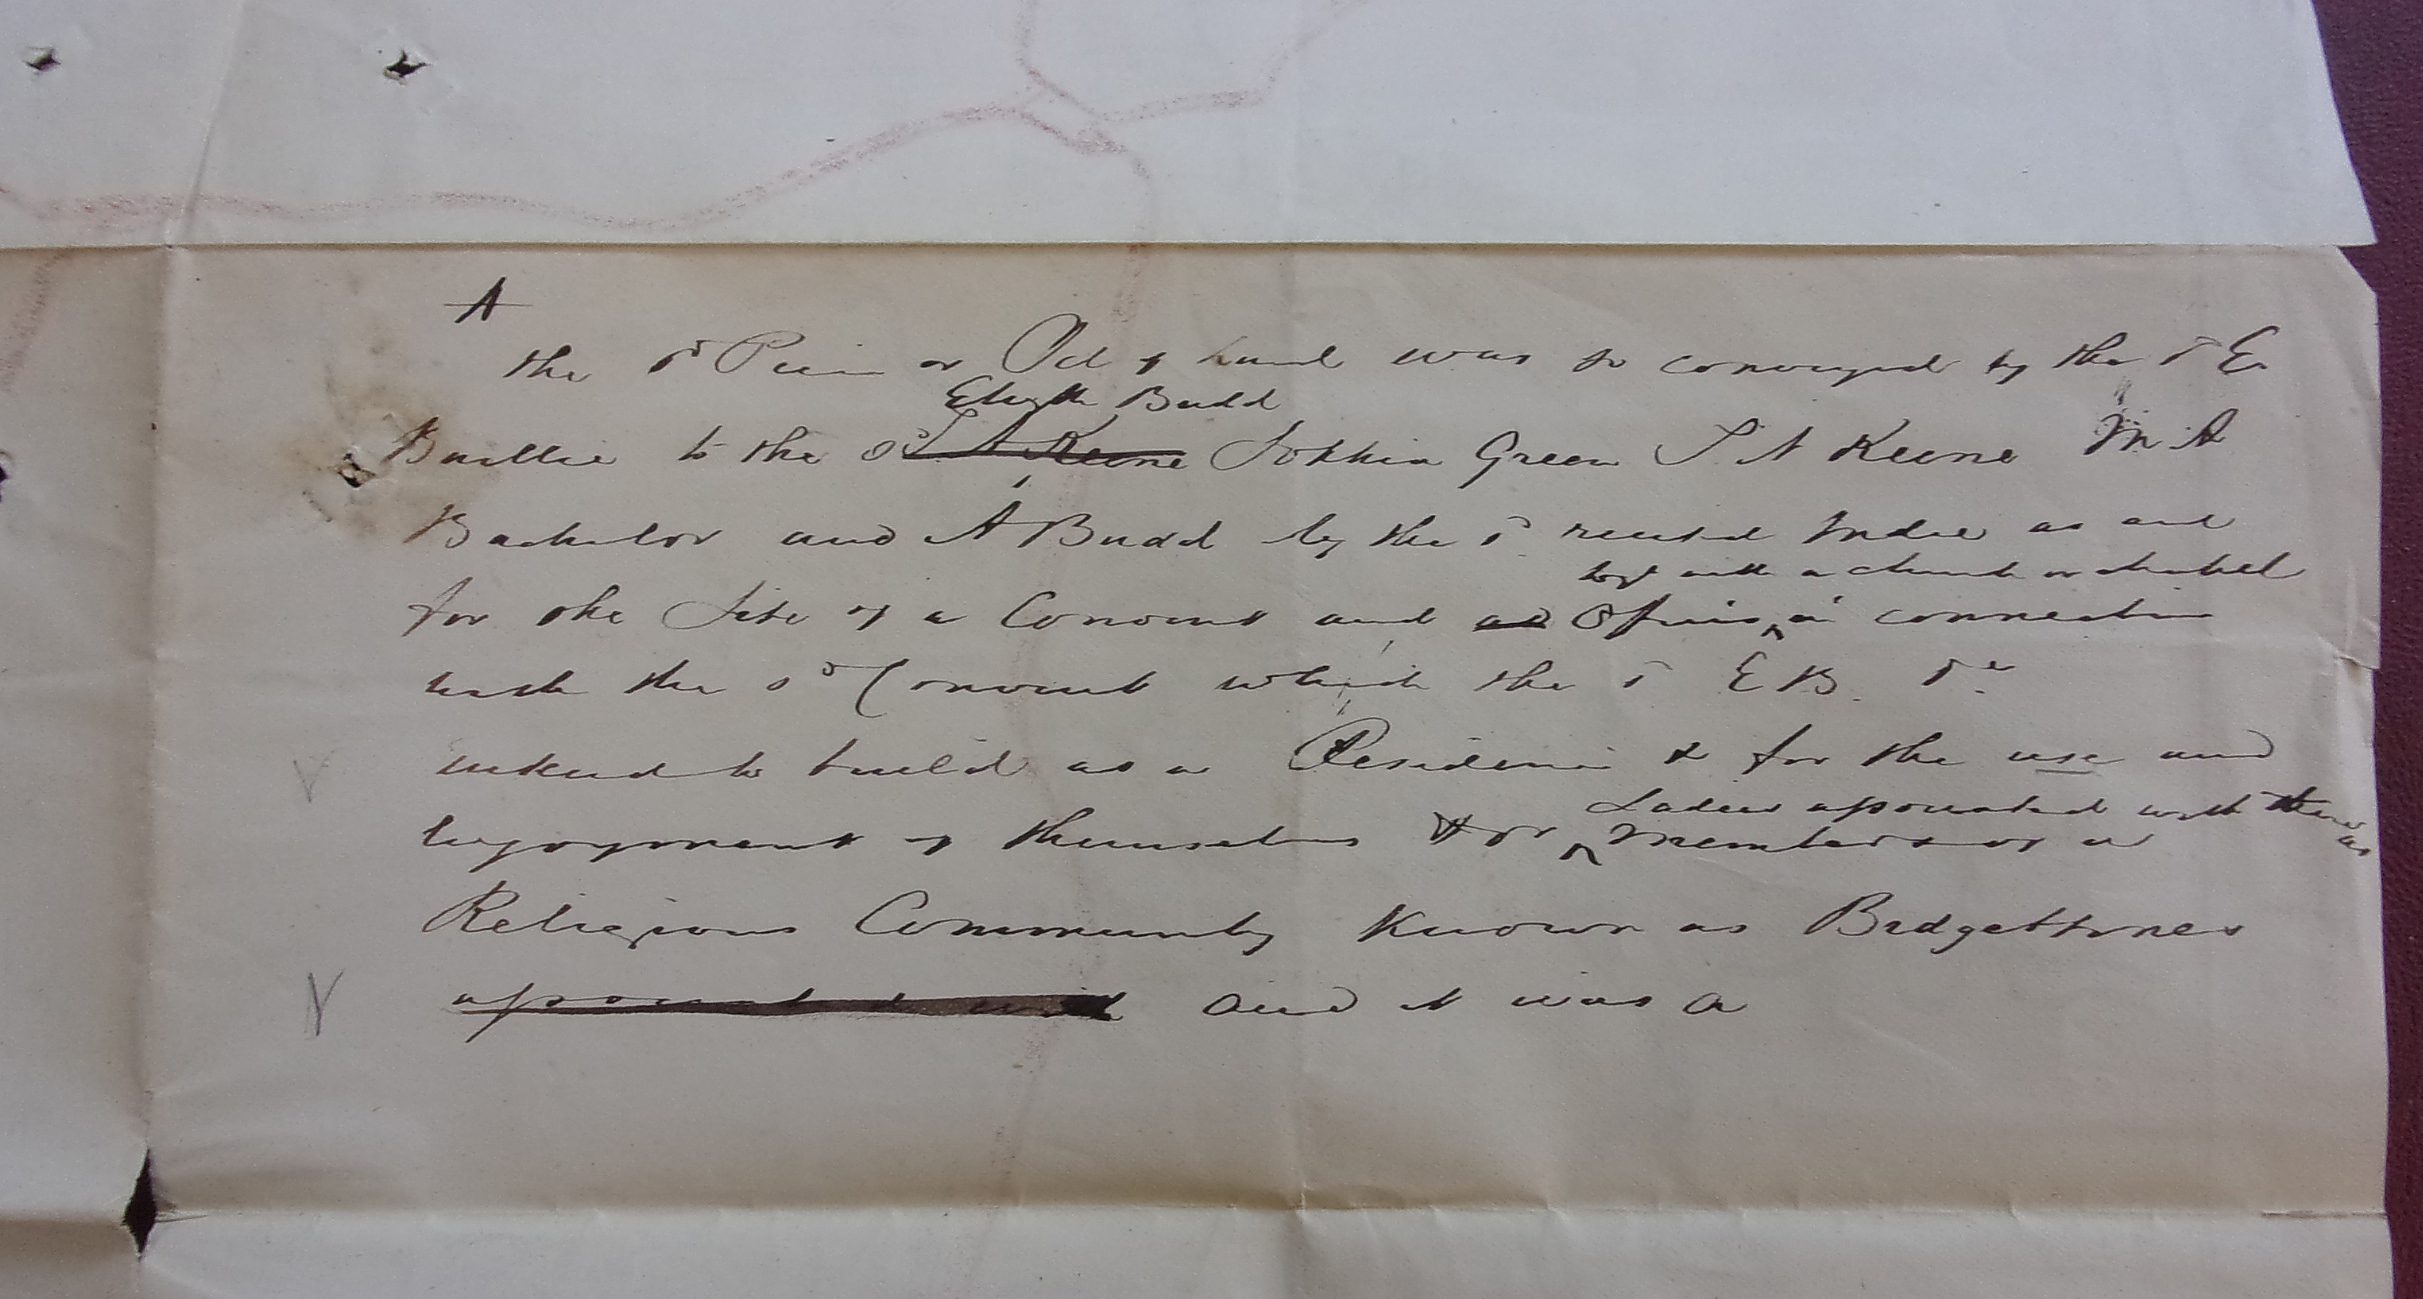 A
the sd Piece or Pcl of Land was so conveyed by the sd E
Elizth Budd
Baillie to the sd S A Keene Sophia Green S A Keene M A
Bachelor and A Budd by the sd recited Indre as and
togr with a church or chapel
for the Site of a Convent and as Offices in connection
with the sd Convent which the sd E B &c
intend to build as a Residence & for the use and
Ladies associated with them as
enjoyment of themselves & or Members of a
Religious Community known as Bridgettines
associated with and it was a